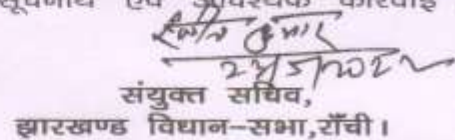 सूचनार्थ एवं आवश्यक कारवाई
कुमार
संयुक्त सचिव,
झारखण्ड विधान-सभा,राँची।